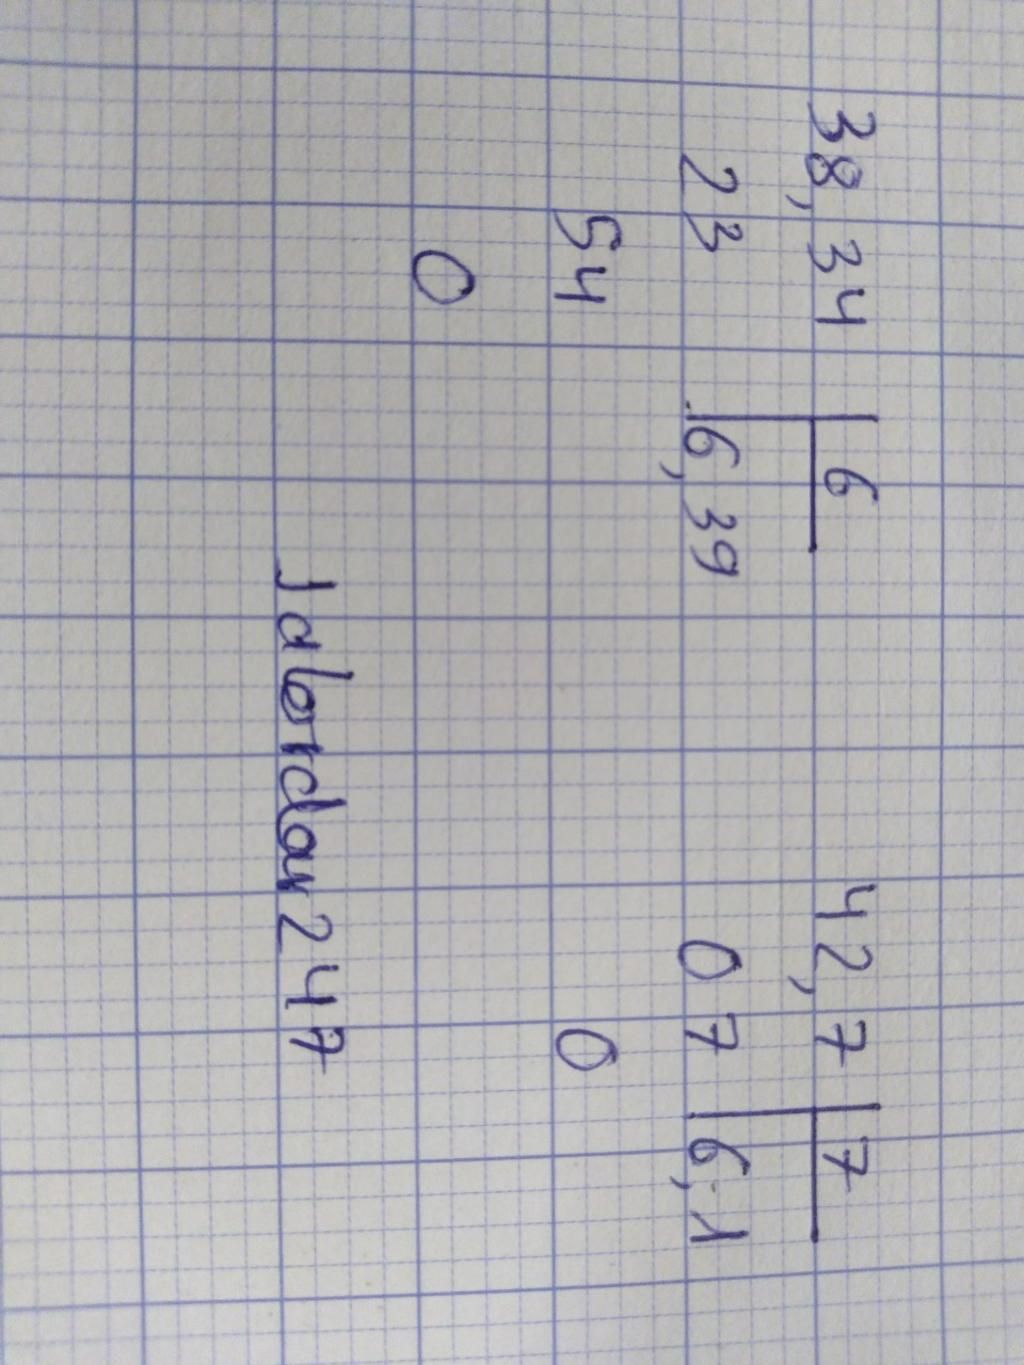 38,34 6 42,7 7
23 6,39 07 6,1
54 0
0
Jalordar247